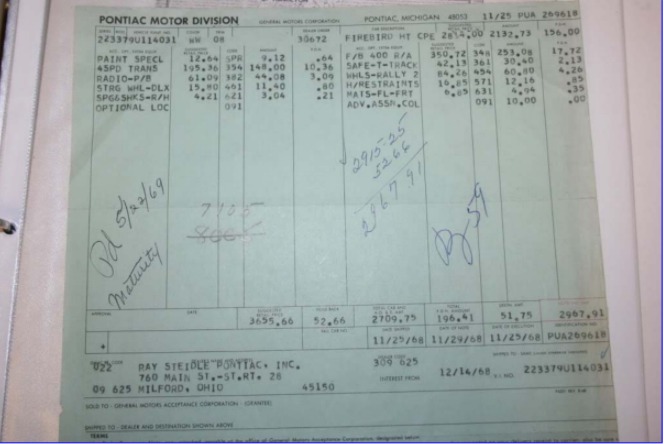 PONTIAC MOTOR DIVISION GENERAL MOTORS CORPORATION PONTIAC, MICHIGAN 48053 11/25 PUA 269618
223379U114031 WW 08 30672 FIREBIRD HT CPE 2834.00 2132.73 156.00
PAINT SPECL 12.64 SPR 9.12 .64 F/B 400 R/A 350.72 348 253.08 17.72
4SPD TRANS 195.36 354 148.00 10.36 SAFE-T-TRACK 42.13 361 30.40 2.13
RADIO-P/B 61.09 382 44.08 3.09 WHLS-RALLY 2 84.26 454 60.80 4.26
STRG WHL-DLX 15.80 461 11.40 .80 H/RESTRAINTS 16.85 571 12.16 .85
SPG&SHKS-R/H 4.21 621 3.04 .21 MATS-FL-FRT 6.85 631 4.94 .35
OPTIONAL LOC 091 ADV.ASSN.COL 091 10.00 .00
2915-25
52 66
2967 91
Pd 5/22/69
Maturity
7105
59
DATE
3655.66 52.66 2709.75 196.41 51.75 2967.91
11/25/68 11/29/68 11/25/68 PUA269618
022 RAY STEIDLE PONTIAC, INC. 309 625
760 MAIN ST.-ST.RT. 28 INTEREST FROM 12/14/68 223379U114031
09 625 MILFORD, OHIO 45150
SOLD TO - GENERAL MOTORS ACCEPTANCE CORPORATION - (GRANTEE)
SHIPPED TO - DEALER AND DESTINATION SHOWN ABOVE
TERMS